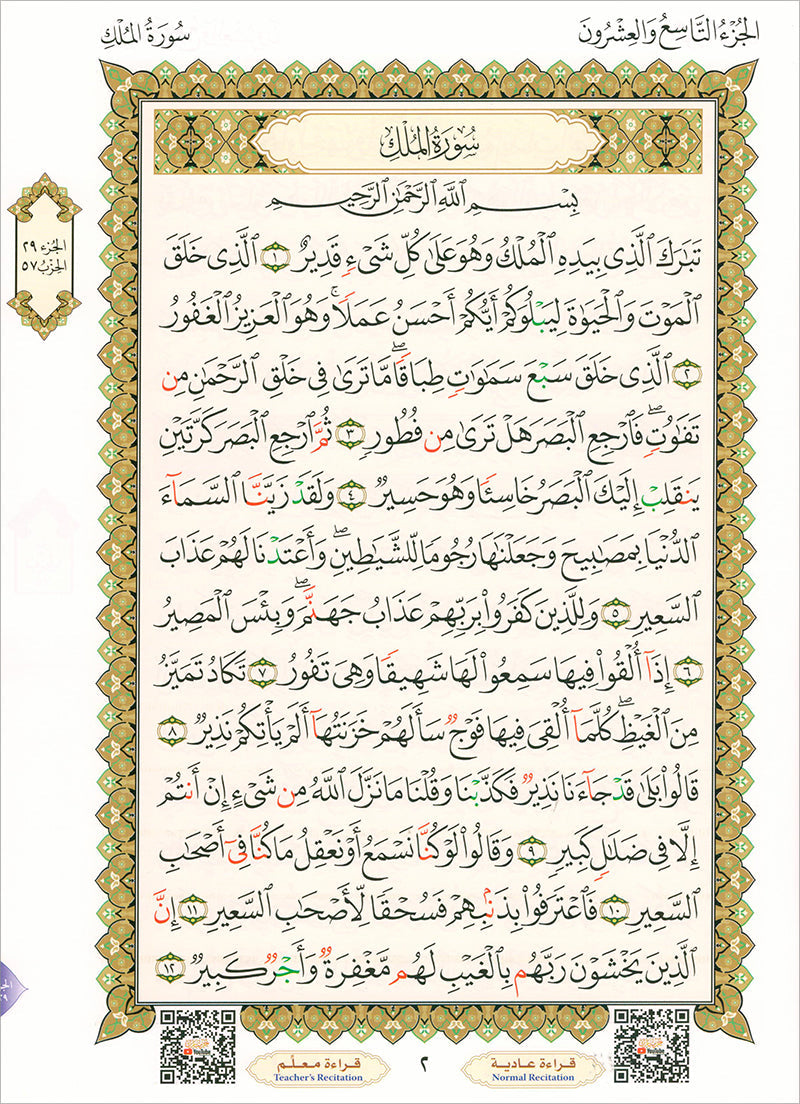 الجُزْءُ التَّاسِعُ وَالعِشْرُونَ
سُورَةُ المُلْكِ
سُورَةُ المُلْكِ
الجُزء ٢٩
الحِزْبُ ٥٧
بِسْمِ اللَّهِ الرَّحْمَٰنِ الرَّحِيمِ
تَبَارَكَ الَّذِي بِيَدِهِ الْمُلْكُ وَهُوَ عَلَىٰ كُلِّ شَيْءٍ قَدِيرٌ ١ الَّذِي خَلَقَ
الْمَوْتَ وَالْحَيَوٰةَ لِيَبْلُوَكُمْ أَيُّكُمْ أَحْسَنُ عَمَلًا ۚ وَهُوَ الْعَزِيزُ الْغَفُورُ
٢ الَّذِي خَلَقَ سَبْعَ سَمَٰوَٰتٍ طِبَاقًا ۖ مَّا تَرَىٰ فِي خَلْقِ الرَّحْمَٰنِ مِن
تَفَٰوُتٍ ۖ فَارْجِعِ الْبَصَرَ هَلْ تَرَىٰ مِن فُطُورٍ ٣ ثُمَّ ارْجِعِ الْبَصَرَ كَرَّتَيْنِ
يَنقَلِبْ إِلَيْكَ الْبَصَرُ خَاسِئًا وَهُوَ حَسِيرٌ ٤ وَلَقَدْ زَيَّنَّا السَّمَآءَ
الدُّنْيَا بِمَصَٰبِيحَ وَجَعَلْنَٰهَا رُجُومًا لِّلشَّيَٰطِينِ ۖ وَأَعْتَدْنَا لَهُمْ عَذَابَ
السَّعِيرِ ٥ وَلِلَّذِينَ كَفَرُوا بِرَبِّهِمْ عَذَابُ جَهَنَّمَ ۖ وَبِئْسَ الْمَصِيرُ
٦ إِذَآ أُلْقُوا فِيهَا سَمِعُوا لَهَا شَهِيقًا وَهِيَ تَفُورُ ٧ تَكَادُ تَمَيَّزُ
مِنَ الْغَيْظِ ۖ كُلَّمَآ أُلْقِيَ فِيهَا فَوْجٌ سَأَلَهُمْ خَزَنَتُهَآ أَلَمْ يَأْتِكُمْ نَذِيرٌ ٨
قَالُوا بَلَىٰ قَدْ جَآءَنَا نَذِيرٌ فَكَذَّبْنَا وَقُلْنَا مَا نَزَّلَ اللَّهُ مِن شَيْءٍ إِنْ أَنتُمْ
إِلَّا فِي ضَلَٰلٍ كَبِيرٍ ٩ وَقَالُوا لَوْ كُنَّا نَسْمَعُ أَوْ نَعْقِلُ مَا كُنَّا فِيٓ أَصْحَٰبِ
السَّعِيرِ ١٠ فَاعْتَرَفُوا بِذَنۢبِهِمْ فَسُحْقًا لِّأَصْحَٰبِ السَّعِيرِ ١١ إِنَّ
الَّذِينَ يَخْشَوْنَ رَبَّهُم بِالْغَيْبِ لَهُم مَّغْفِرَةٌ وَأَجْرٌ كَبِيرٌ ١٢
قراءة عادية
Normal Recitation
٢
قراءة معلّم
Teacher's Recitation
YouTube
YouTube